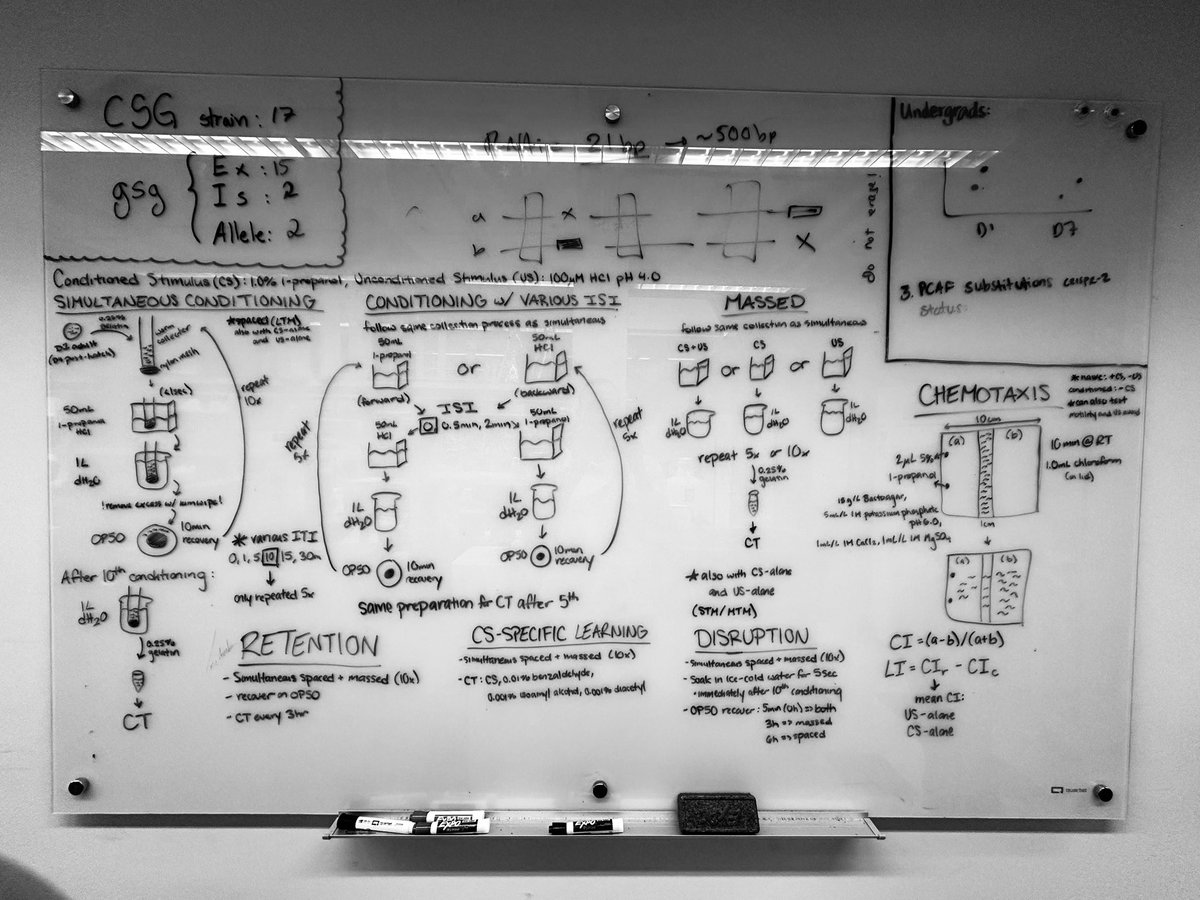 CSG strain: 17
gsg
Ex: 15
Is: 2
Allele: 2
RNAi - 21bp → ~500bp
a
x
b
X
Do not erase!
Undergrads:
D1
D7
3. PCAF substitutions
status:
Conditioned Stimulus (CS): 1.0% 1-propanol, Unconditioned Stimulus (US): 100μM HCl pH 4.0
SIMULTANEOUS CONDITIONING
0.25%
gelatin
D1 adult
worm
collector
nylon mesh
*spaced (LTM)
also with CS-alone
and US-alone
(<1sec)
repeat
10x
50mL
1-propanol
HCl
1L
dH₂O
!remove excess w/ kimwipe!
OP50
10min
recovery
* various ITI
0, 1, 5, 10, 15, 30m
only repeated 5x
After 10th conditioning:
1L
dH₂O
0.25%
gelatin
CT
CONDITIONING w/ VARIOUS ISI
follow same collection process as simultaneous
50mL
1-propanol
or
50mL
HCl
(forward)
(backward)
ISI
0, 0.5min, 2min
50mL
HCl
50mL
1-propanol
repeat
5x
repeat
5x
1L
dH₂O
1L
dH₂O
OP50
10min
recovery
OP50
10min
recovery
same preparation for CT after 5th
MASSED
follow same collection as simultaneous
CS+US
CS
US
or
or
1L
dH₂O
1L
dH₂O
1L
dH₂O
repeat 5x or 10x
0.25%
gelatin
CT
* also with CS-alone
and US-alone
(STM/MTM)
CHEMOTAXIS
* naive: +CS, -US
conditioned: -CS
* can also test
10cm
(a)
(b)
10min @ RT
1.0mL chloroform
(on lid)
2μL 5%
1-propanol
15g/L Bactoagar,
5mL/L 1M potassium phosphate
pH 6.0,
1mL/L 1M CaCl₂, 1mL/L 1M MgSO₄
1cm
(a)
(b)
CI = (a-b)/(a+b)
LI = CIᵣ - CI꜀
mean CI:
US-alone
CS-alone
RETENTION
- Simultaneous spaced + massed (10x)
- recover on OP50
- CT every 3hr
CS-SPECIFIC LEARNING
- Simultaneous spaced + massed (10x)
- CT: CS, 0.01% benzaldehyde,
0.001% isoamyl alcohol, 0.001% diacetyl
DISRUPTION
- Simultaneous spaced + massed (10x)
- Soak in ice-cold water for 5sec
• immediately after 10th conditioning
- OP50 recover: 5min (0h) => both
3h => massed
6h => spaced
EXPO
EXPO
Quartet